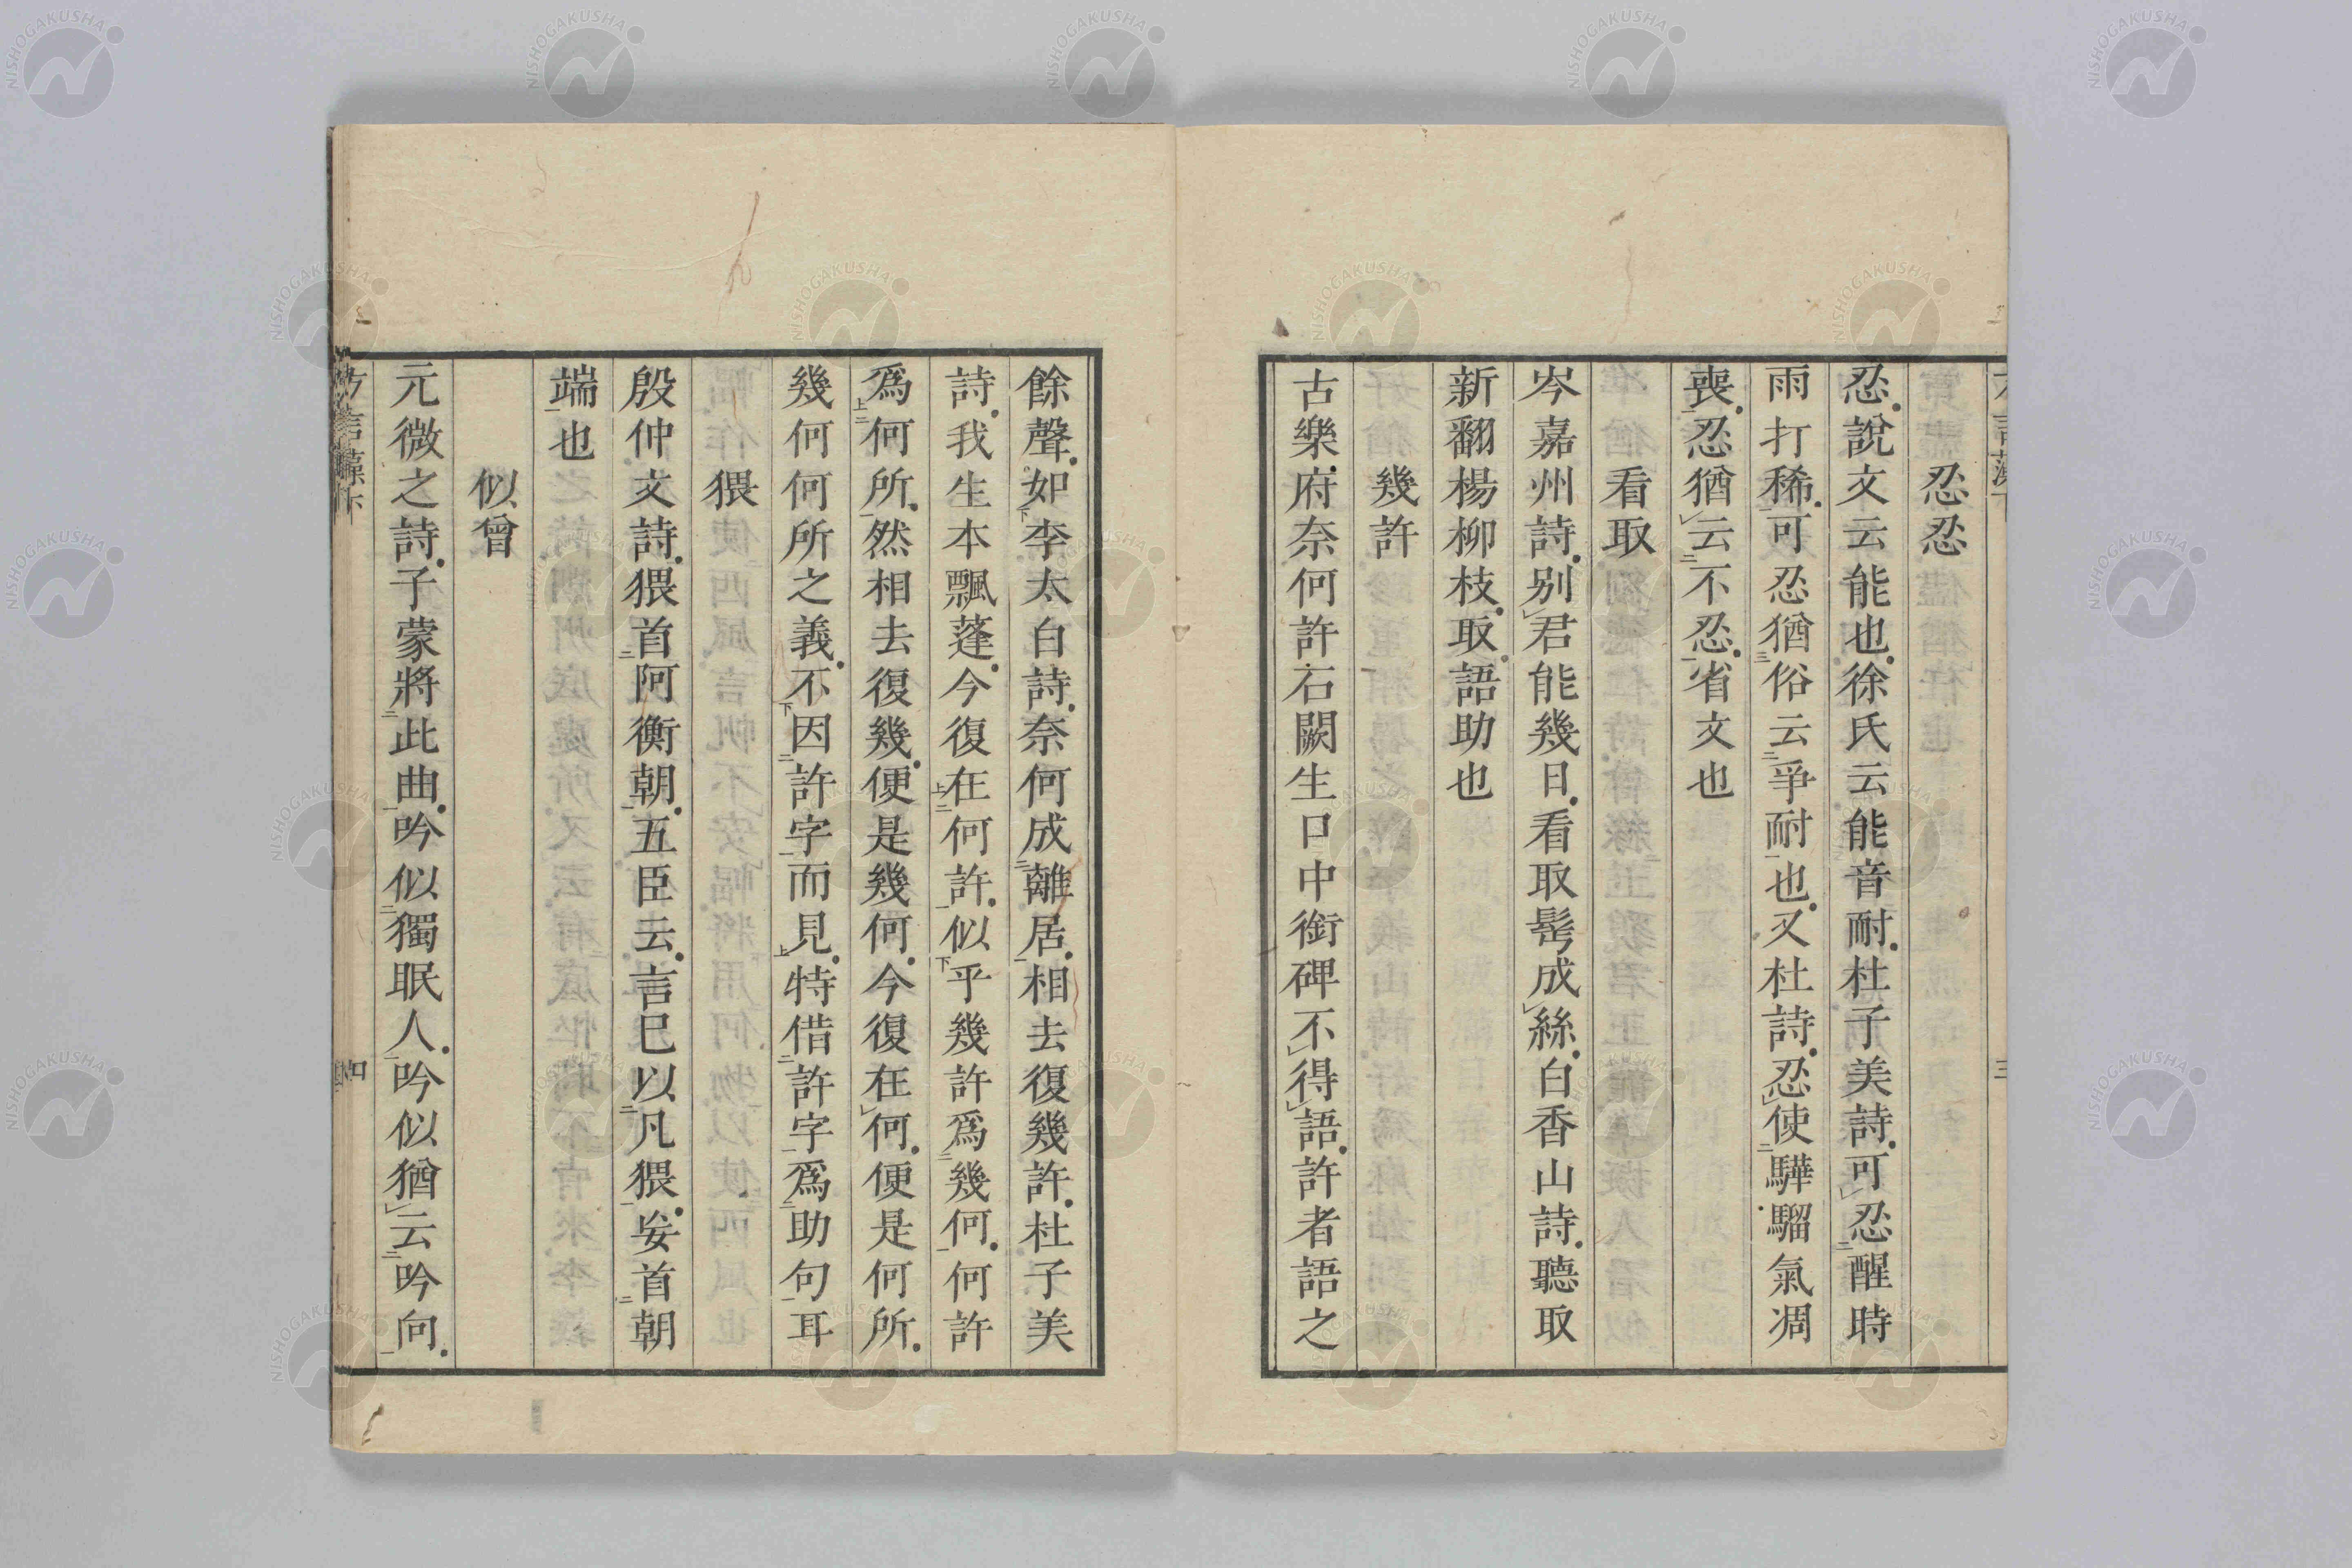 忍忍
忍說文云能也徐氏云能音耐杜子美詩可忍醒時
雨打稀可忍猶俗云爭耐也又杜詩忍使驊騮氣凋
喪忍猶云不忍省文也
看取
岑嘉州詩別君能幾日看取髩成絲白香山詩聽取
新翻楊柳枝取語助也
幾許
古樂府奈何許石闕生口中銜碑不得語許者語之
餘聲如李太白詩奈何成離居相去復幾許杜子美
詩我生本飄蓬今復在何許似乎幾許爲幾何何許
爲何所然相去復幾便是幾何今復在何便是何所
幾何何所之義不因許字而見特借許字爲助句耳
猥
殷仲文詩猥首阿衡朝五臣云言巳以凡猥妄首朝
端也
似曾
元微之詩子蒙將此曲吟似獨眠人吟似猶云吟向
四
NISHOGAKUSHA